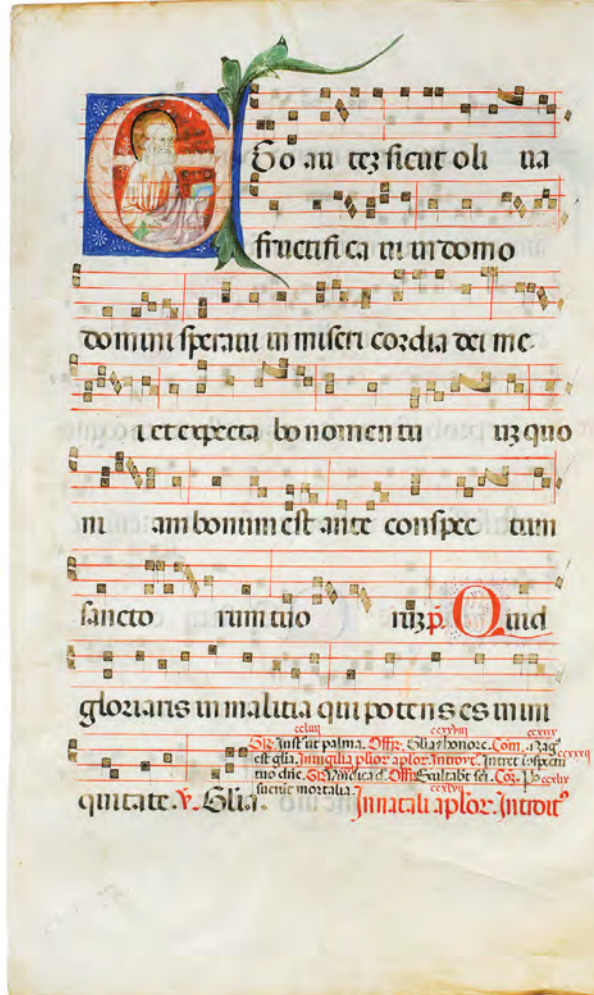 Ego au tez sicut oli ua
fructifi ca ui in domo
domini speraui in miseri cordia dei me
i et expecta bo nomen tu uz quo
ni am bonum est ante conspec tum
sancto rum tuo ruz p̄. Quid
gloriaris in malitia qui potens es in ini
ccliiij ccxxviij ccxxix
Gr. Iust' ut palma. Offr. Glia 7 honore. Com. Mag
est glia. In uigilia plior aplor. Introit. Intret i ɔspectu ccxxxij
tuo dñe. Gr. Vindica d. Offr. Exultabt sci. Co. Po ccxlix
suerūt mortalia. ccxlvij
quitate. V. Glia. In natali aplor. Introit'